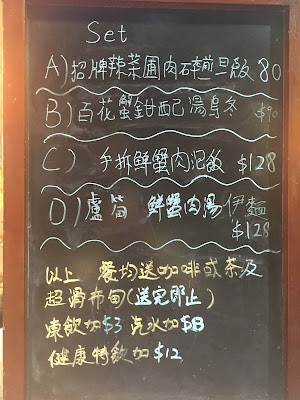 Set
A) 招牌辣菜圃肉碎煎旦飯 80
B) 百花蟹鉗配湯烏冬 $90
C) 手拆鮮蟹肉泡飯 $128
D) 蘆筍 鮮蟹肉湯伊麵
$128
以上 餐均送咖啡或茶及
超滑布甸(送完即止)
凍飲加$3 汽水加$8
健康特飲加$12